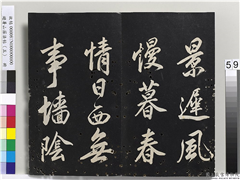 景遲風
慢暮春
情日西無
事墻陰
59